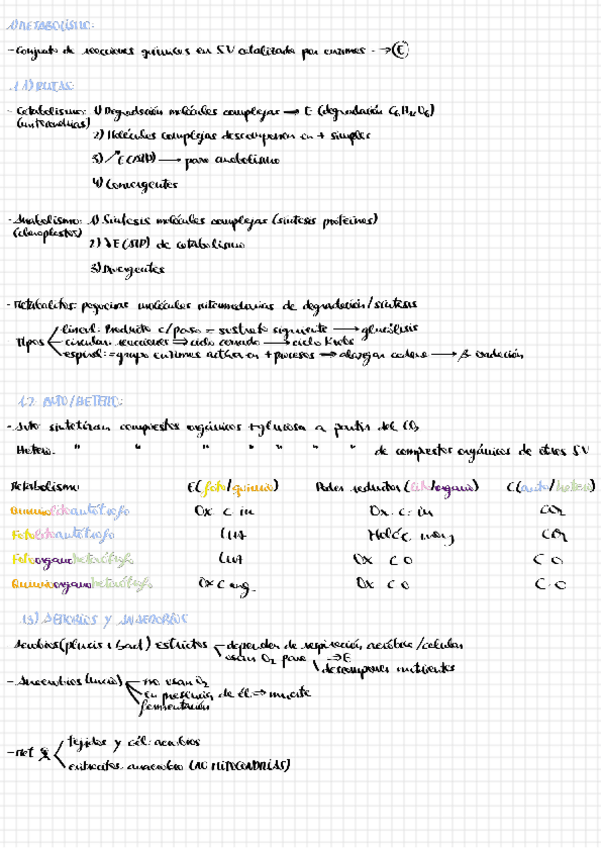 1) METABOLISMO:
- Conjunto de reacciones químicas en SV catalizada por enzimas → (E)
1.1) RUTAS:
- Catabolismo: 1) Degradación moléculas complejas → E (degradación C6H12O6)
(mitocondrias)
2) Moléculas complejas descomponen en + simples
3) ↗E (ATP) → para anabolismo
4) Convergentes
- Anabolismo: 1) Síntesis moléculas complejas (síntesis proteínas)
(cloroplastos)
2) ↓E (ATP) de catabolismo
3) Divergentes
- Metabolitos: pequeñas moléculas intermediarias de degradación/síntesis
Tipos
lineal: Producto c/paso = sustrato siguiente → glucólisis
circular: reacciones ⇒ ciclo cerrado → ciclo Krebs
espiral: = grupo enzimas activa en + procesos → alargan cadena → β oxidación
1.2 AUTO/HETERO:
- Auto sintetizan compuestos orgánicos + glucosa a partir del CO2
Hetero. " " " " " " " de compuestos orgánicos de otros SV
Metabolismo E (foto/quimio) Poder reductor (lito/organo) C (auto/hetero)
Quimiolitoautótrofo Ox C in Ox. C. in CO2
Fotolitoautótrofo Luz Moléc. inorg CO2
Fotoorganoheterótrofo Luz Ox C O C O
Quimioorganoheterótrofo Ox C org. Ox C O C. O
1.3) AEROBIOS Y ANAEROBIOS
Aerobios (pluric + bact) estrictos
dependen de respiración aeróbica/celular
usan O2 para → E
descomponer nutrientes
- Anaerobios (unic)
no usan O2
en presencia de él ⇒ muerte
fermentación
- Met
tejidos y cél: aerobios
eritrocitos: anaerobio (NO MITOCONDRIAS)